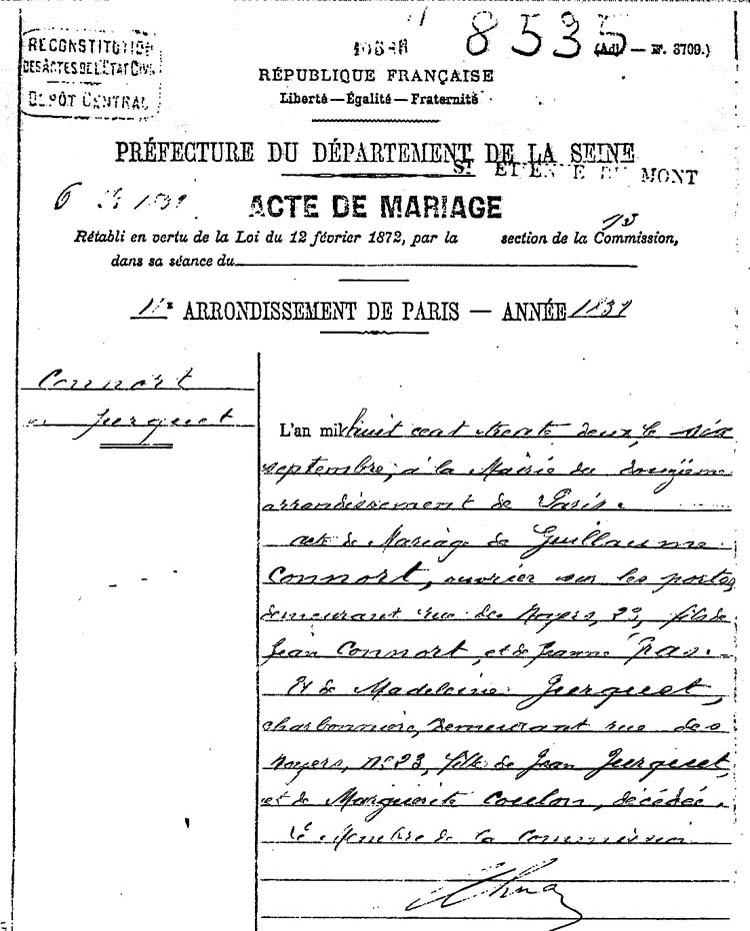 8535
RECONSTITUTION
DES ACTES DE L'ÉTAT CIVIL
DÉPÔT CENTRAL
(Adl — Nº. 3709.)
RÉPUBLIQUE FRANÇAISE
Liberté — Égalité — Fraternité
PRÉFECTURE DU DÉPARTEMENT DE LA SEINE
ST ETIENNE DU MONT
6 1832
ACTE DE MARIAGE
Rétabli en vertu de la Loi du 12 février 1872, par la section de la Commission,
dans sa séance du
ARRONDISSEMENT DE PARIS — ANNÉE 1832
Connort
et Jurquet
L'an mil huit cent trente deux, le six
septembre, à la Mairie du douzième
arrondissement de Paris.
acte de Mariage de Guillaume
Connort, ouvrier sur les portes,
demeurant rue des Noyers, 23, fils de
Jean Connort, et de Jeanne
Et de Madeleine Jurquet,
charbonnière, demeurant rue des
Noyers, nº 23, fille de Jean Jurquet,
et de Marguerite Coulon, décédée.
Le Membre de la Commission